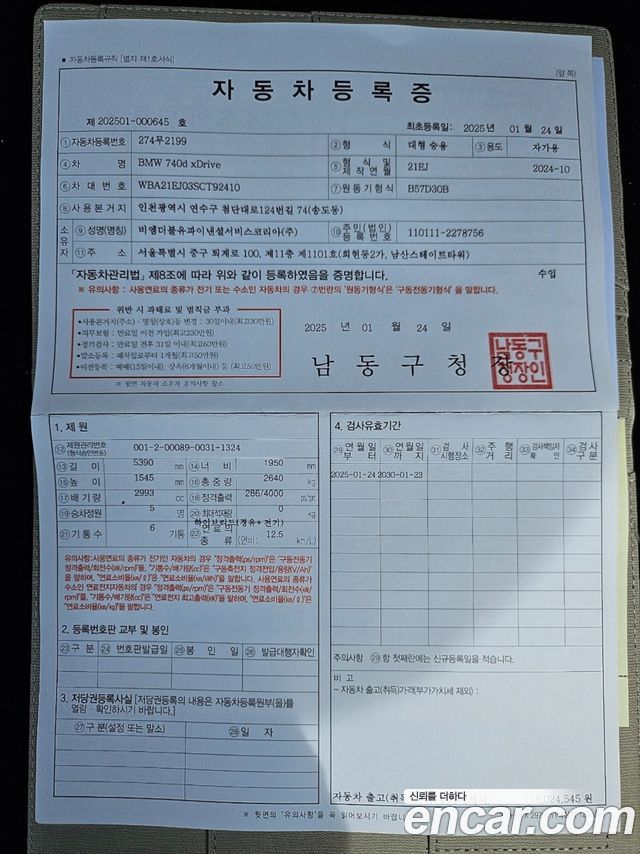 ■ 자동차등록규칙 [별지 제1호서식]
(앞 쪽)
자 동 차 등 록 증
제 202501-000645 호
최초등록일: 2025년 01월 24일
① 자동차등록번호 274무2199 ② 형 식 대형 승용 ③ 용도 자가용
④ 차 명 BMW 740d xDrive ⑤ 형 식 및 제작연월 21EJ 2024-10
⑥ 차 대 번 호 WBA21EJ03SCT92410 ⑦ 원동기형식 B57D30B
⑧ 사 용 본 거 지 인천광역시 연수구 첨단대로124번길 74(송도동)
소유자 ⑨ 성명(명칭) 비엠더블유파이낸셜서비스코리아(주) ⑩ 주민(법인)등록번호 110111-2278756
⑪ 주 소 서울특별시 중구 퇴계로 100, 제11층 제1101호(회현동2가, 남산스테이트타워)
「자동차관리법」 제8조에 따라 위와 같이 등록하였음을 증명합니다. 수입
※ 유의사항 : 사용연료의 종류가 전기 또는 수소인 자동차의 경우 ⑦번란의 '원동기형식'은 '구동전동기형식'을 말합니다.
위반 시 과태료 및 범칙금 부과
•사용본거지(주소)·명칭(상호)등 변경 : 30일이내(최고30만원)
•의무보험 : 만료일 이전 가입(최고230만원)
•정기검사 : 만료일 전후 31일 이내(최고60만원)
•말소등록 : 폐차일로부터 1개월(최고50만원)
•이전등록 : 매매(15일이내), 상속(6개월이내) 등 (최고50만원)
※ 뒷면 자동차 소유자 유의사항 참조
2025 년 01 월 24 일
남 동 구 청 장
남동구청장인
1. 제원
⑫ 제원관리번호 (형식승인번호) 001-2-00089-0031-1324
⑬ 길 이 5390 mm ⑭ 너 비 1950 mm
⑮ 높 이 1545 mm ⑯ 총 중 량 2640 kg
⑰ 배 기 량 2993 cc ⑱ 정격출력 286/4000 ps/rpm
⑲ 승차정원 5 명 ⑳ 최대적재량 0 kg
㉑ 기 통 수 6 기통 ㉒ 연료의 종 류 하이브리드(경유+전기) (연비: 12.5 km/L)
유의사항:사용연료의 종류가 전기인 자동차의 경우 "정격출력(ps/rpm)"은 "구동전동기
정격출력/회전수(㎾/rpm)"를, "기통수/배기량(cc)"은 "구동축전지 정격전압/용량(V/Ah)"
을 말하며, "연료소비율(㎞/ℓ)"은 "연료소비율(㎞/㎾h)"을 말합니다. 사용연료의 종류가
수소인 연료전지자동차의 경우 "정격출력(ps/rpm)"은 "구동전동기 정격출력/회전수(㎾/
rpm)"를, "기통수/배기량(cc)"은 "연료전지 최고출력(㎾)"을 말하며, "연료소비율(㎞/ℓ)"은
"연료소비율(㎞/kg)"을 말합니다.
2. 등록번호판 교부 및 봉인
㉓ 구 분 ㉔ 번호판발급일 ㉕ 봉 인 일 ㉖ 발급대행자확인
3. 저당권등록사실 [저당권등록의 내용은 자동차등록원부(을)를
열람·확인하시기 바랍니다.]
㉗ 구 분(설정 또는 말소) ㉘ 일 자
4. 검사유효기간
㉙ 연 월 일 부 터 ㉚ 연 월 일 까 지 ㉛ 검 사 시행장소 ㉜ 주 행 거 리 ㉝ 검사책임자 확 인 ㉞ 검 사 구 분
2025-01-24 2030-01-23
주의사항 ㉙항 첫째란에는 신규등록일을 적습니다.
비 고
- 자동차 출고(취득)가격(부가가치세 제외) :
자동차 출고(취득
024,545 원
※ 뒷면의 "유의사항"을 꼭 읽어보시기 바랍니
신뢰를 더하다
encar.com